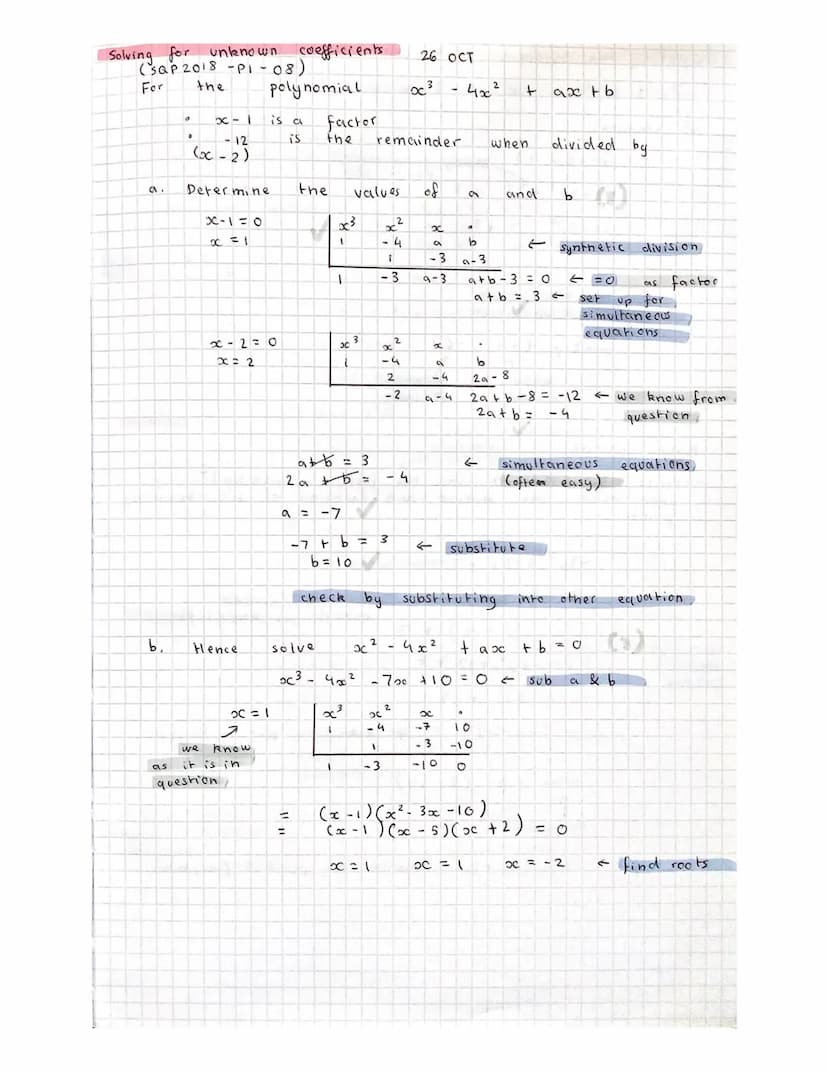 Solving for unknown coefficients 26 OCT
(SQP2018 - P1 - 08)
For the polynomial x³ - 4x² + ax + b
• x - 1 is a factor
• -12 is the remainder when divided by
(x - 2)
a. Determine the values of a and b
x - 1 = 0 x³ x² x •
x = 1 1 -4 a b ← synthetic division
1 -3 a-3
1 -3 a-3 a+b-3 = 0 ← =0 as factor
a+b = 3 ← set up for
simultaneous
equations
x - 2 = 0 x³ x² x •
x = 2 1 -4 a b
2 -4 2a-8
-2 a-4 2a+b-8 = -12 ← we know from
2a+b = -4 question
a+b = 3 ← simultaneous equations
2a+b = -4 (often easy)
a = -7
-7 + b = 3 ← substitute
b = 10
check by substituting into other equation
b. Hence solve x² - 4x² + ax + b = 0
x³ - 4x² - 7x + 10 = 0 ← sub a & b
x = 1 x³ x² x •
1 -4 -7 10
we know 1 -3 -10
as it is in 1 -3 -10 0
question
= (x-1)(x² - 3x - 10)
= (x-1)(x-5)(x+2) = 0
x = 1 x = 1 x = -2 ← find roots